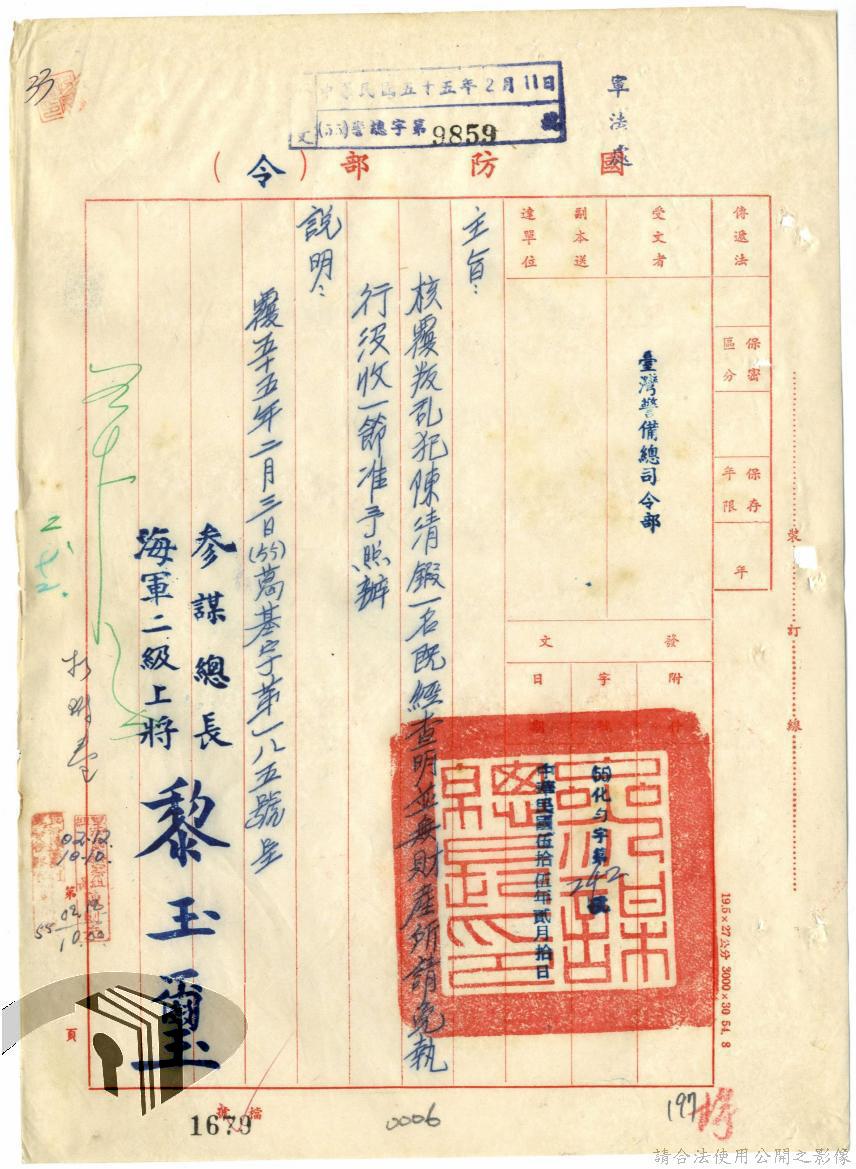 軍法處
中華民國五十五年2月11日
(55)警總字第9859號
文
國防部(令)
傳遞法
保密區分
保存年限
年
受文者
臺灣警備總司令部
副本送達單位
發文
附件
字號
日期
(55)化勻字第242號
中華民國伍拾伍年貳月拾日
主旨：
核覆叛乱犯陳清鍛一名既經查明並無財產所請免執
行沒收一節准予照辦
說明：
覆五十五年二月三日(55)葛基字第一八五號呈
參謀總長
海軍二級上將
黎玉璽
裝訂線
19.5×27公分 3000×30 54. 8
第
頁
02.12.
10.10.
55
33
檔號
1679
0006
197
請合法使用公開之影像